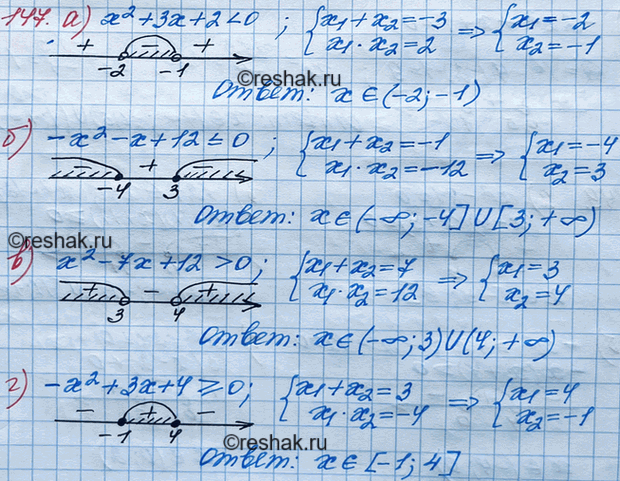 147. а) x² + 3x + 2 < 0 ; { x₁ + x₂ = -3 ⇒ { x₁ = -2
x₁ · x₂ = 2 x₂ = -1
+ - +
-2 -1
©reshak.ru
Ответ: x ∈ (-2; -1)
б) -x² - x + 12 ≤ 0 ; { x₁ + x₂ = -1 ⇒ { x₁ = -4
x₁ · x₂ = -12 x₂ = 3
- + -
-4 3
Ответ: x ∈ (-∞; -4] ∪ [3; +∞)
©reshak.ru
в) x² - 7x + 12 > 0 ; { x₁ + x₂ = 7 ⇒ { x₁ = 3
x₁ · x₂ = 12 x₂ = 4
+ - +
3 4
Ответ: x ∈ (-∞; 3) ∪ (4; +∞)
г) -x² + 3x + 4 ≥ 0 ; { x₁ + x₂ = 3 ⇒ { x₁ = 4
x₁ · x₂ = -4 x₂ = -1
- + -
-1 4
©reshak.ru
Ответ: x ∈ [-1; 4]